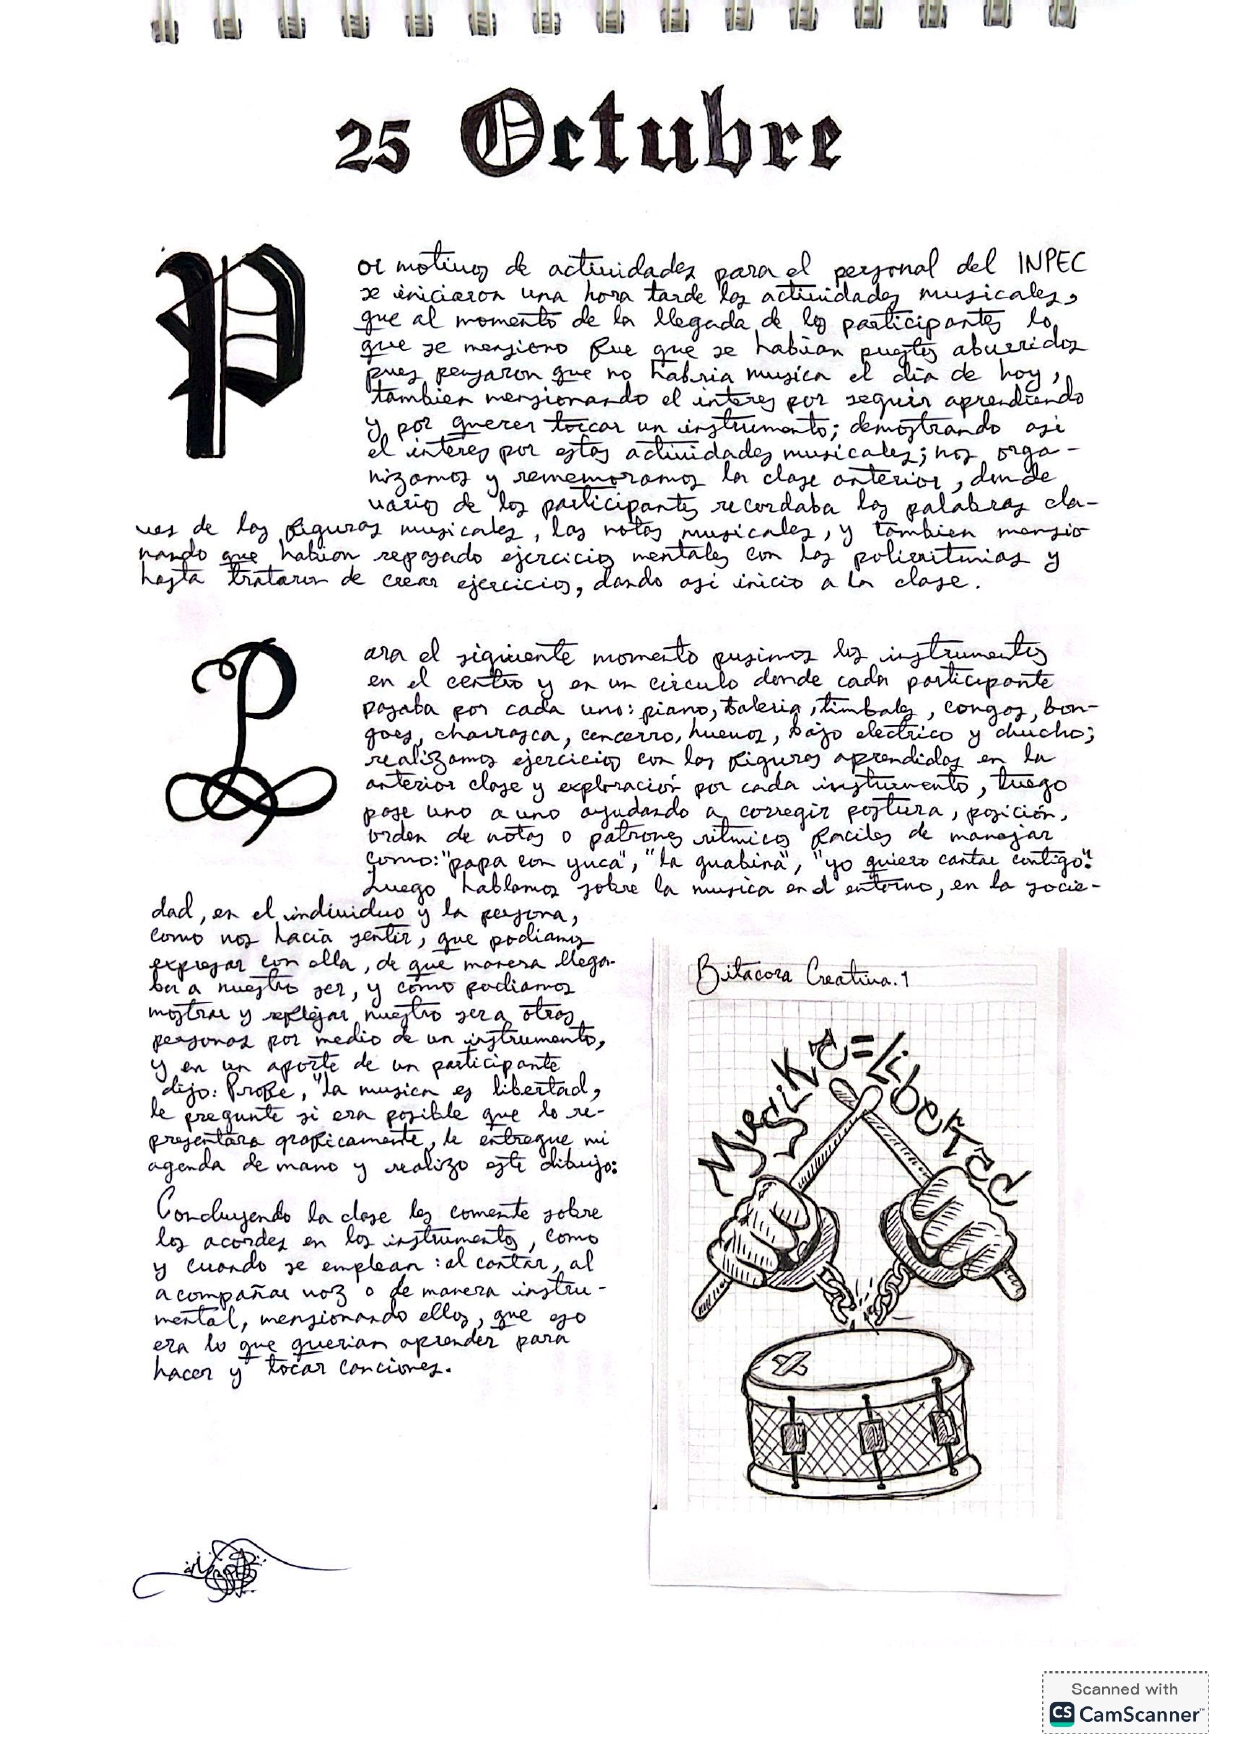 25 Octubre
Por motivos de actividades para el personal del INPEC
se iniciaron una hora tarde las actividades musicales,
que al momento de la llegada de los participantes lo
que se mensiono fue que se habian puesto aburridos
pues pensaron que no habria musica el dia de hoy,
tambien mensionando el interes por seguir aprendiendo
y por querer toccar un instrumento; demostrando asi
el interes por estas actividades musicales; nos orga-
nizamos y rememoramos la clase anterior, donde
varios de los participantes recordaba las palabras cla-
ves de las figuras musicales, las notas musicales, y tambien mensio
nando que habian repasado ejercicios mentales con las poliritmias y
hasta trataron de crear ejercicios, dando asi inicio a la clase.
Para el siguiente momento pusimos los instrumentos
en el centro y en un circulo donde cada participante
pasaba por cada uno: piano, bateria, timbales, congas, bon-
goes, charrasca, cencerro, huevos, bajo electrico y chucho;
realizamos ejercicios con las figuras aprendidas en la
anterior clase y exploración por cada instrumento, luego
pase uno a uno ayudando a corregir postura, posición,
orden de notas o patrones ritmicos faciles de manejar
como: "papa con yuca", "la guabina", "yo quiero cantar contigo".
Luego hablamos sobre la musica en el entorno, en la socie-
dad, en el individuo y la persona,
como nos hacia sentir, que podiamos
expresar con ella, de que manera llega-
ba a nuestro ser, y como podiamos
mostrar y reflejar nuestro ser a otras
personas por medio de un instrumento,
y en un aporte de un participante
dijo: Profe, "la musica es libertad,
le pregunte si era posible que lo re-
presentara graficamente, le entregue mi
agenda de mano y realizo este dibujo:
Concluyendo la clase les comente sobre
los acordes en los instrumentos, como
y cuando se emplean: al cantar, al
acompañar voz o de manera instru-
mental, mensionando ellos, que eso
era lo que querian aprender para
hacer y tocar canciones.
Bitacora Creativa.1
Musika = Libertad
Scanned with
CS CamScanner